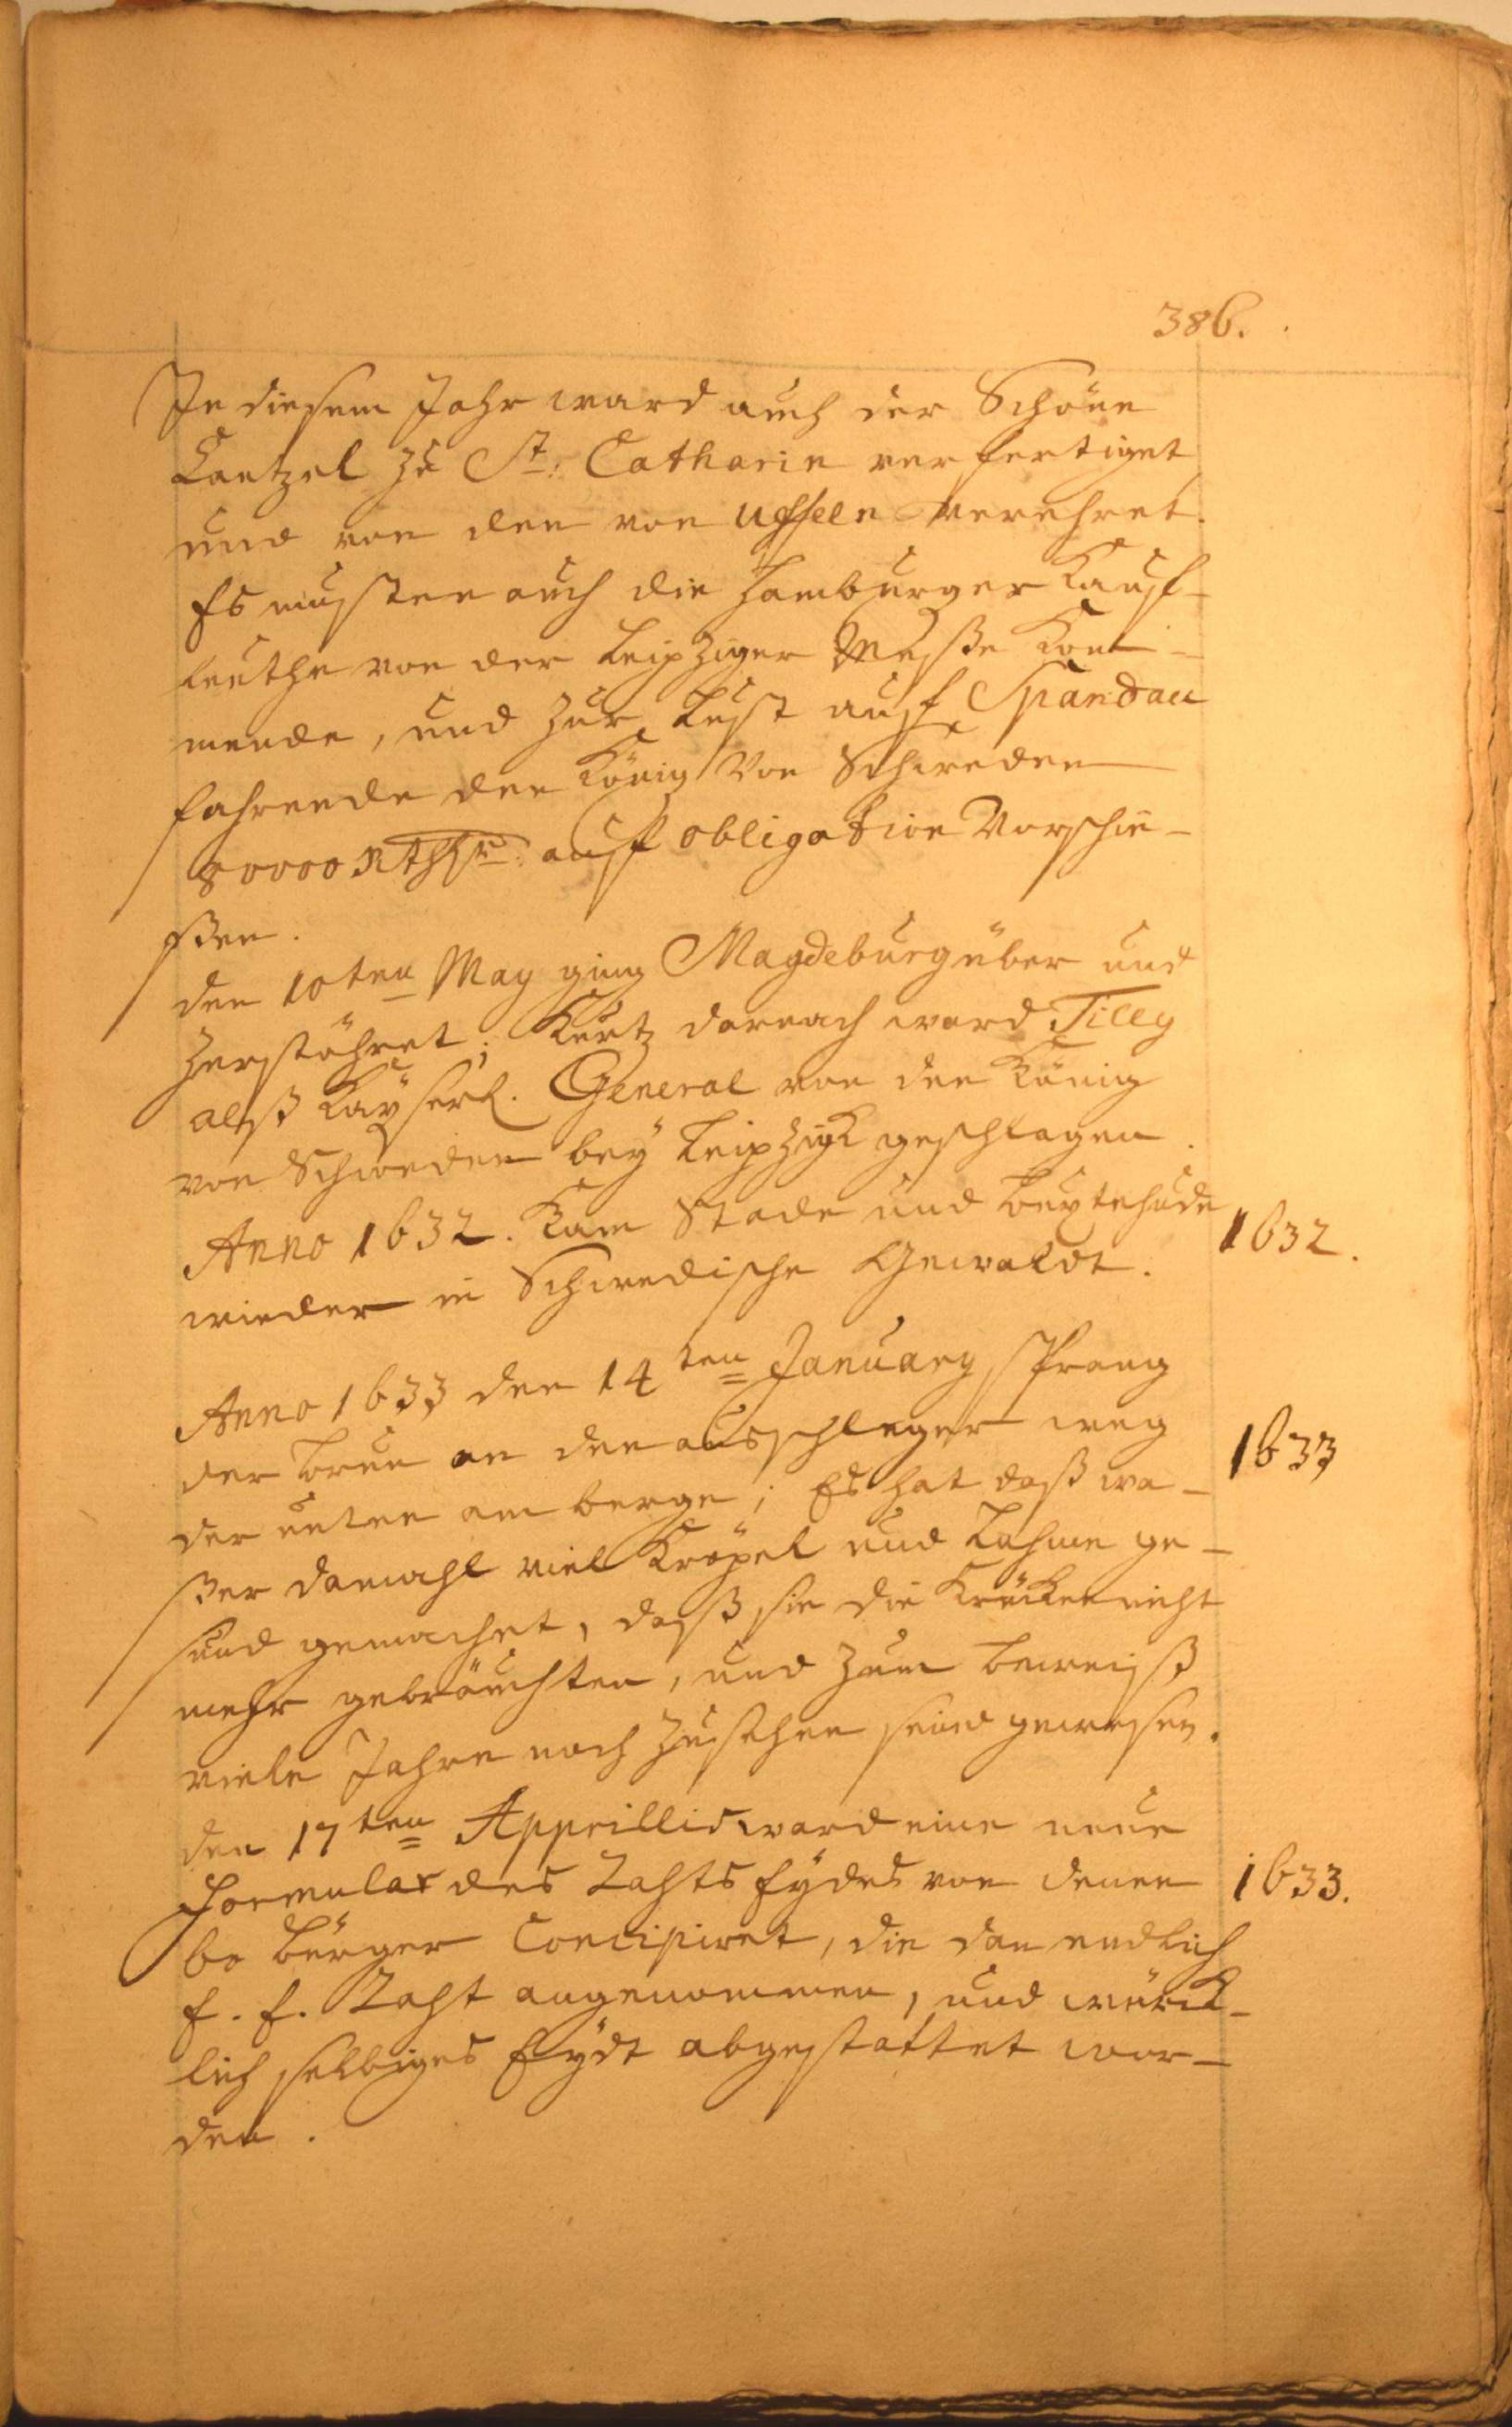 386.
In diesem Jahr ward auch der Schöne
Cantzel zu St: Catharin verfertiget
und von den von Uffeln verehret.
Es musten auch die Hamburger Kauf-
leuthe von der Leipziger Meße kom-
mende, und zur Lust auf Spandau
fahrende den König Von Schweden
80000 Rthlr: auf obligation Vorschie-
ßen.
den 10ten May ging Magdeburg über und
zerstöhret; Kurtz darnach ward Tilly
alß Kayserl. General von den König
von Schweden bey Leipzigk geschlagen.
Anno 1632. Kam Stade und Buxtehude
1632.
wieder in Schwedische Gewaldt.
Anno 1633 den 14ten January sprang
der Brun an den ausschleger weg
1633
der unten am berge; Es hat daß wa-
ßer damahl viel Kröpel und Lahme ge-
sund gemachet, daß sie die Krücken nicht
mehr gebräuchten, und zum beweiß
viele Jahre noch zu sehen seind gewesen.
den 17ten Apprillis ward eine neue
Formular des Rahts Eydes von denen
1633.
60 Bürger Concipiret, die dan endlich
E. E. Raht angenommen, und würck-
lich selbiges Eydt abgestattet wor-
den.